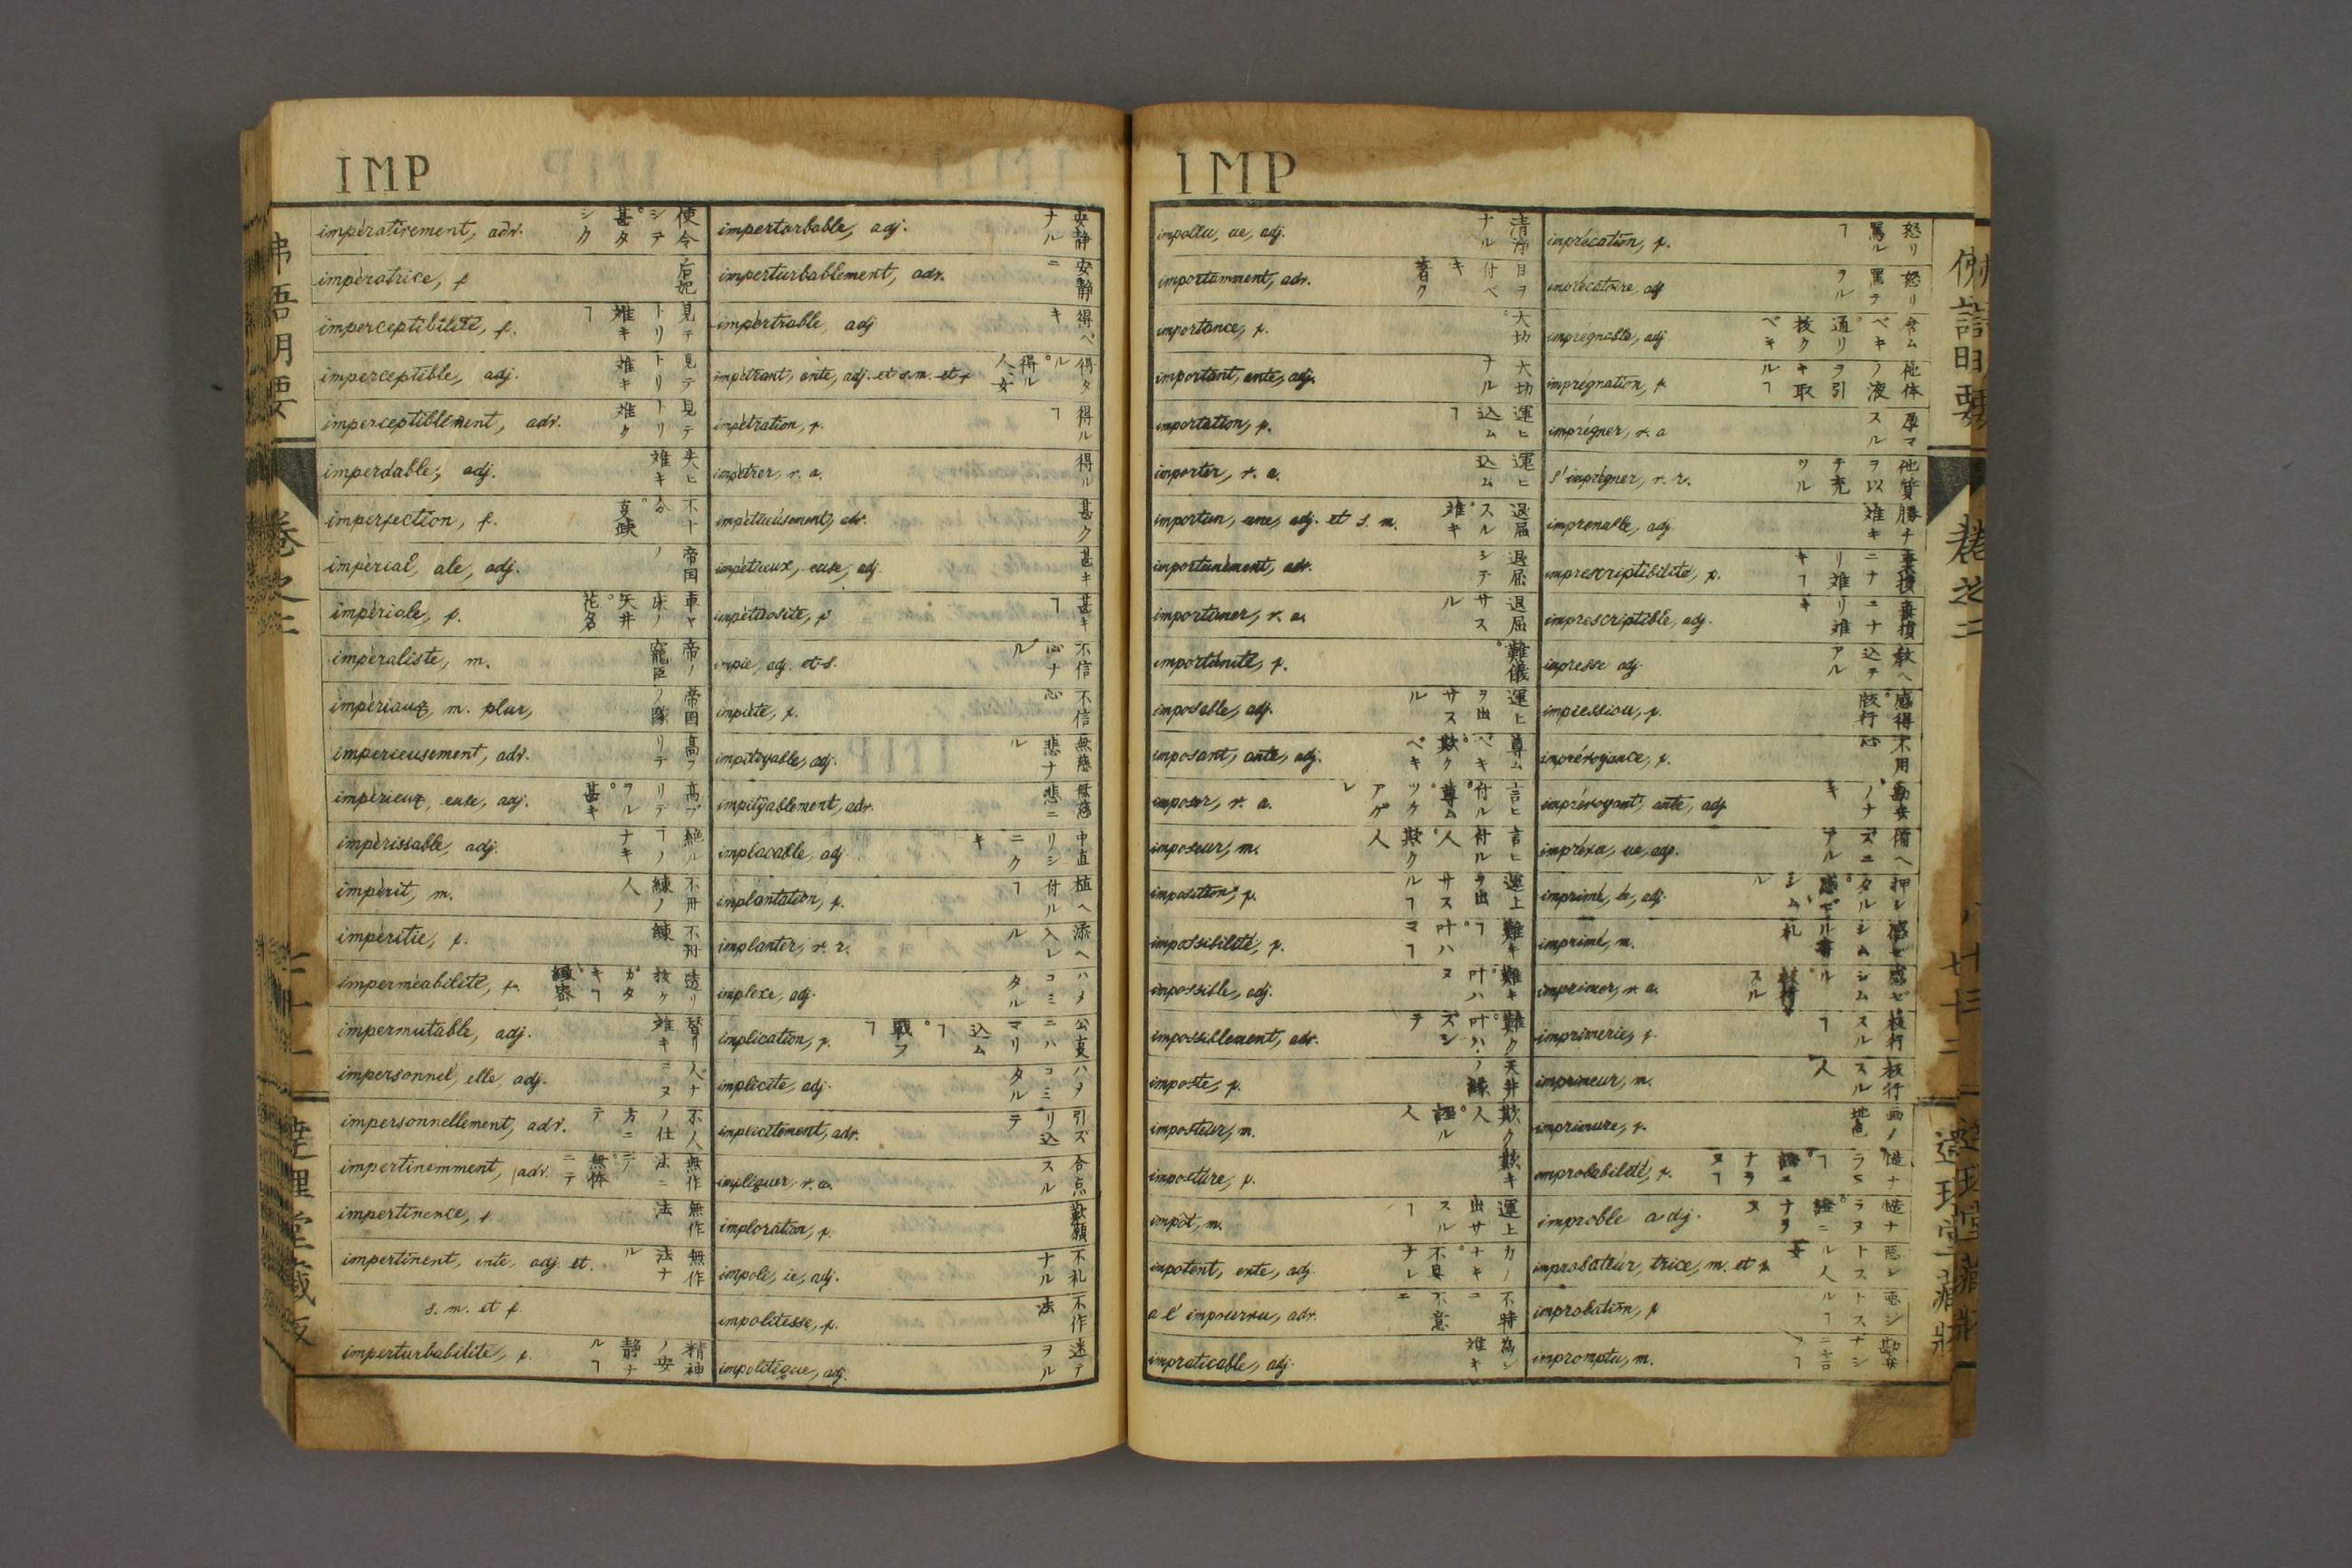 IMP
impérativement, adv. 使令シテ。甚タシク
impératrice, f. 后妃
imperceptibilité, f. 見テトリ難キヿ
imperceptible, adj. 見テトリ難キ
imperceptiblement, adv. 見テトリ難ク
imperdable, adj. 失ヒ難キ
imperfection, f.
impérial, ale, adj. 帝国ノ
impériale, f.
impérialiste, m. 帝ノ寵臣
impériaux, m. plur, 帝国ノ隊
impérieusement, adv. 高ブリテ
impérieux, euse, adj. 高ブリテヲル。甚キ
impérissable, adj. 絶ルヿノナキ
impérit, m. 不練ノ人
impéritie, f. 不練
imperméabilité, f. 透リ抜ケガタキヿ
impermutable, adj. 替リ難キ
impersonnel, elle, adj. 人ナ
impersonnellement, adv. 不人ノ仕方ニテ
impertinemment, adv. 無作法ニテ。無体ニテ
impertinence, f. 無作法
impertinent, ente, adj. et. 無作法ナル
s. m. et f.
imperturbabilité, f. 精神ノ安静ナルヿ
imperturbable, adj. 安静ナル
imperturbablement, adv. 安静ニ
impétrable, adj 得ベキ
impétrant, ante, adj. et s.m. et f 得タル。得ル人、女
impétration, f. 得ルヿ
impétrer, v. a. 得ル
impétueusement, adv. 甚ク
impétueux, euse, adj. 甚キ
impétuosité, f 甚キヿ
impie, adj. et s. 不信心ナル
impiété, f. 不信心
impitoyable, adj. 無慈悲ナル
impitoyablement, adv. 無慈悲ニ
implacable, adj. 中直リシニクキ
implantation, f. 植ヘ付ルヿ
implanter, v. r. 添ヘ入レル
implexe, adj. ハメコミタル
implication, f. 込ムヿ。戦フヿ
implicite, adj. ハメコミタル
implicitement, adv. 引ズリ込テ
impliquer, v. a. 合点スル
imploration, f. 歎願
impoli, ie, adj. 不礼ナル
impolitesse, f. 不作法
impolitique, adj. 迷テヲル
IMP
impollu, ue, adj. 清浄ナル
importamment, adv. 目ヲ付ベキ 著ク
importance, f. 大切。
important, ante, adj. 大切ナル
importation, f. 運ヒ込ムヿ
importer, v. a. 運ヒ込ム
importun, une, adj. et s. m. 退屈スル。難キ
importunément, adv. 退屈シテ
importuner, v. a. 退屈サスル
importunité, f. 難儀。
imposable, adj. 運上ヲ出サスル
imposant, ante, adj. 尊ムベキ。欺クベキ
imposer, v. a. 言ヒ付ル。尊ム
imposeur, m. 言ヒ付ル人。欺ク人
imposition, f. 運上ヲ出サスルヿ
impossibilité, f. 難キヿ。叶ハ
impossible, adj. 難キ。叶ハヌ
impossiblement, adv. 難ク。叶ハズシテ
imposte, f. 天井ノ縁
imposteur, m. 欺ク人。誣ル人
imposture, f. 欺キ
impôt, m. 運上出サスルヿ
impotent, ente, adj 力ノナキ。不具ナレ
a l'impourvu, adv. 不時ニ 不意ニ
impraticable, adj. 為シ難キ
imprécation, f. 怒リ罵ルヿ
imprécatoire, adj 怒リ罵テヲル
imprégnable, adj 含ムベキ。通リ抜クベキ
imprégnation, f. 他体ノ液ヲ引キ取ルヿ
imprégner, v. a 孕マスル
s'imprégner, v. r. 他質ヲ以テ充ツル
imprenable, adj. 勝チ難キ
imprescriptibilité, f.
imprescriptible, adj.
impresse adj
impression, f. 感得。版行
imprévoyance, f. 不用心
imprévoyant, ante, adj
imprévu, ue, adj. 備ヘズニアル
imprimé, ée, adj.
imprimé, m.
imprimer, v. a.
imprimerie, f. 板行スルヿ
imprimeur, m. 板行スル人
imprimure, f. 画ノ地色
improbabilité, f.
improble adj.
improbateur, trice, m. et f 悪シトスル人 女
improbation, f 悪シトスルヿ
impromptu, m.
佛語明要
卷之二
七十二
達理堂藏版